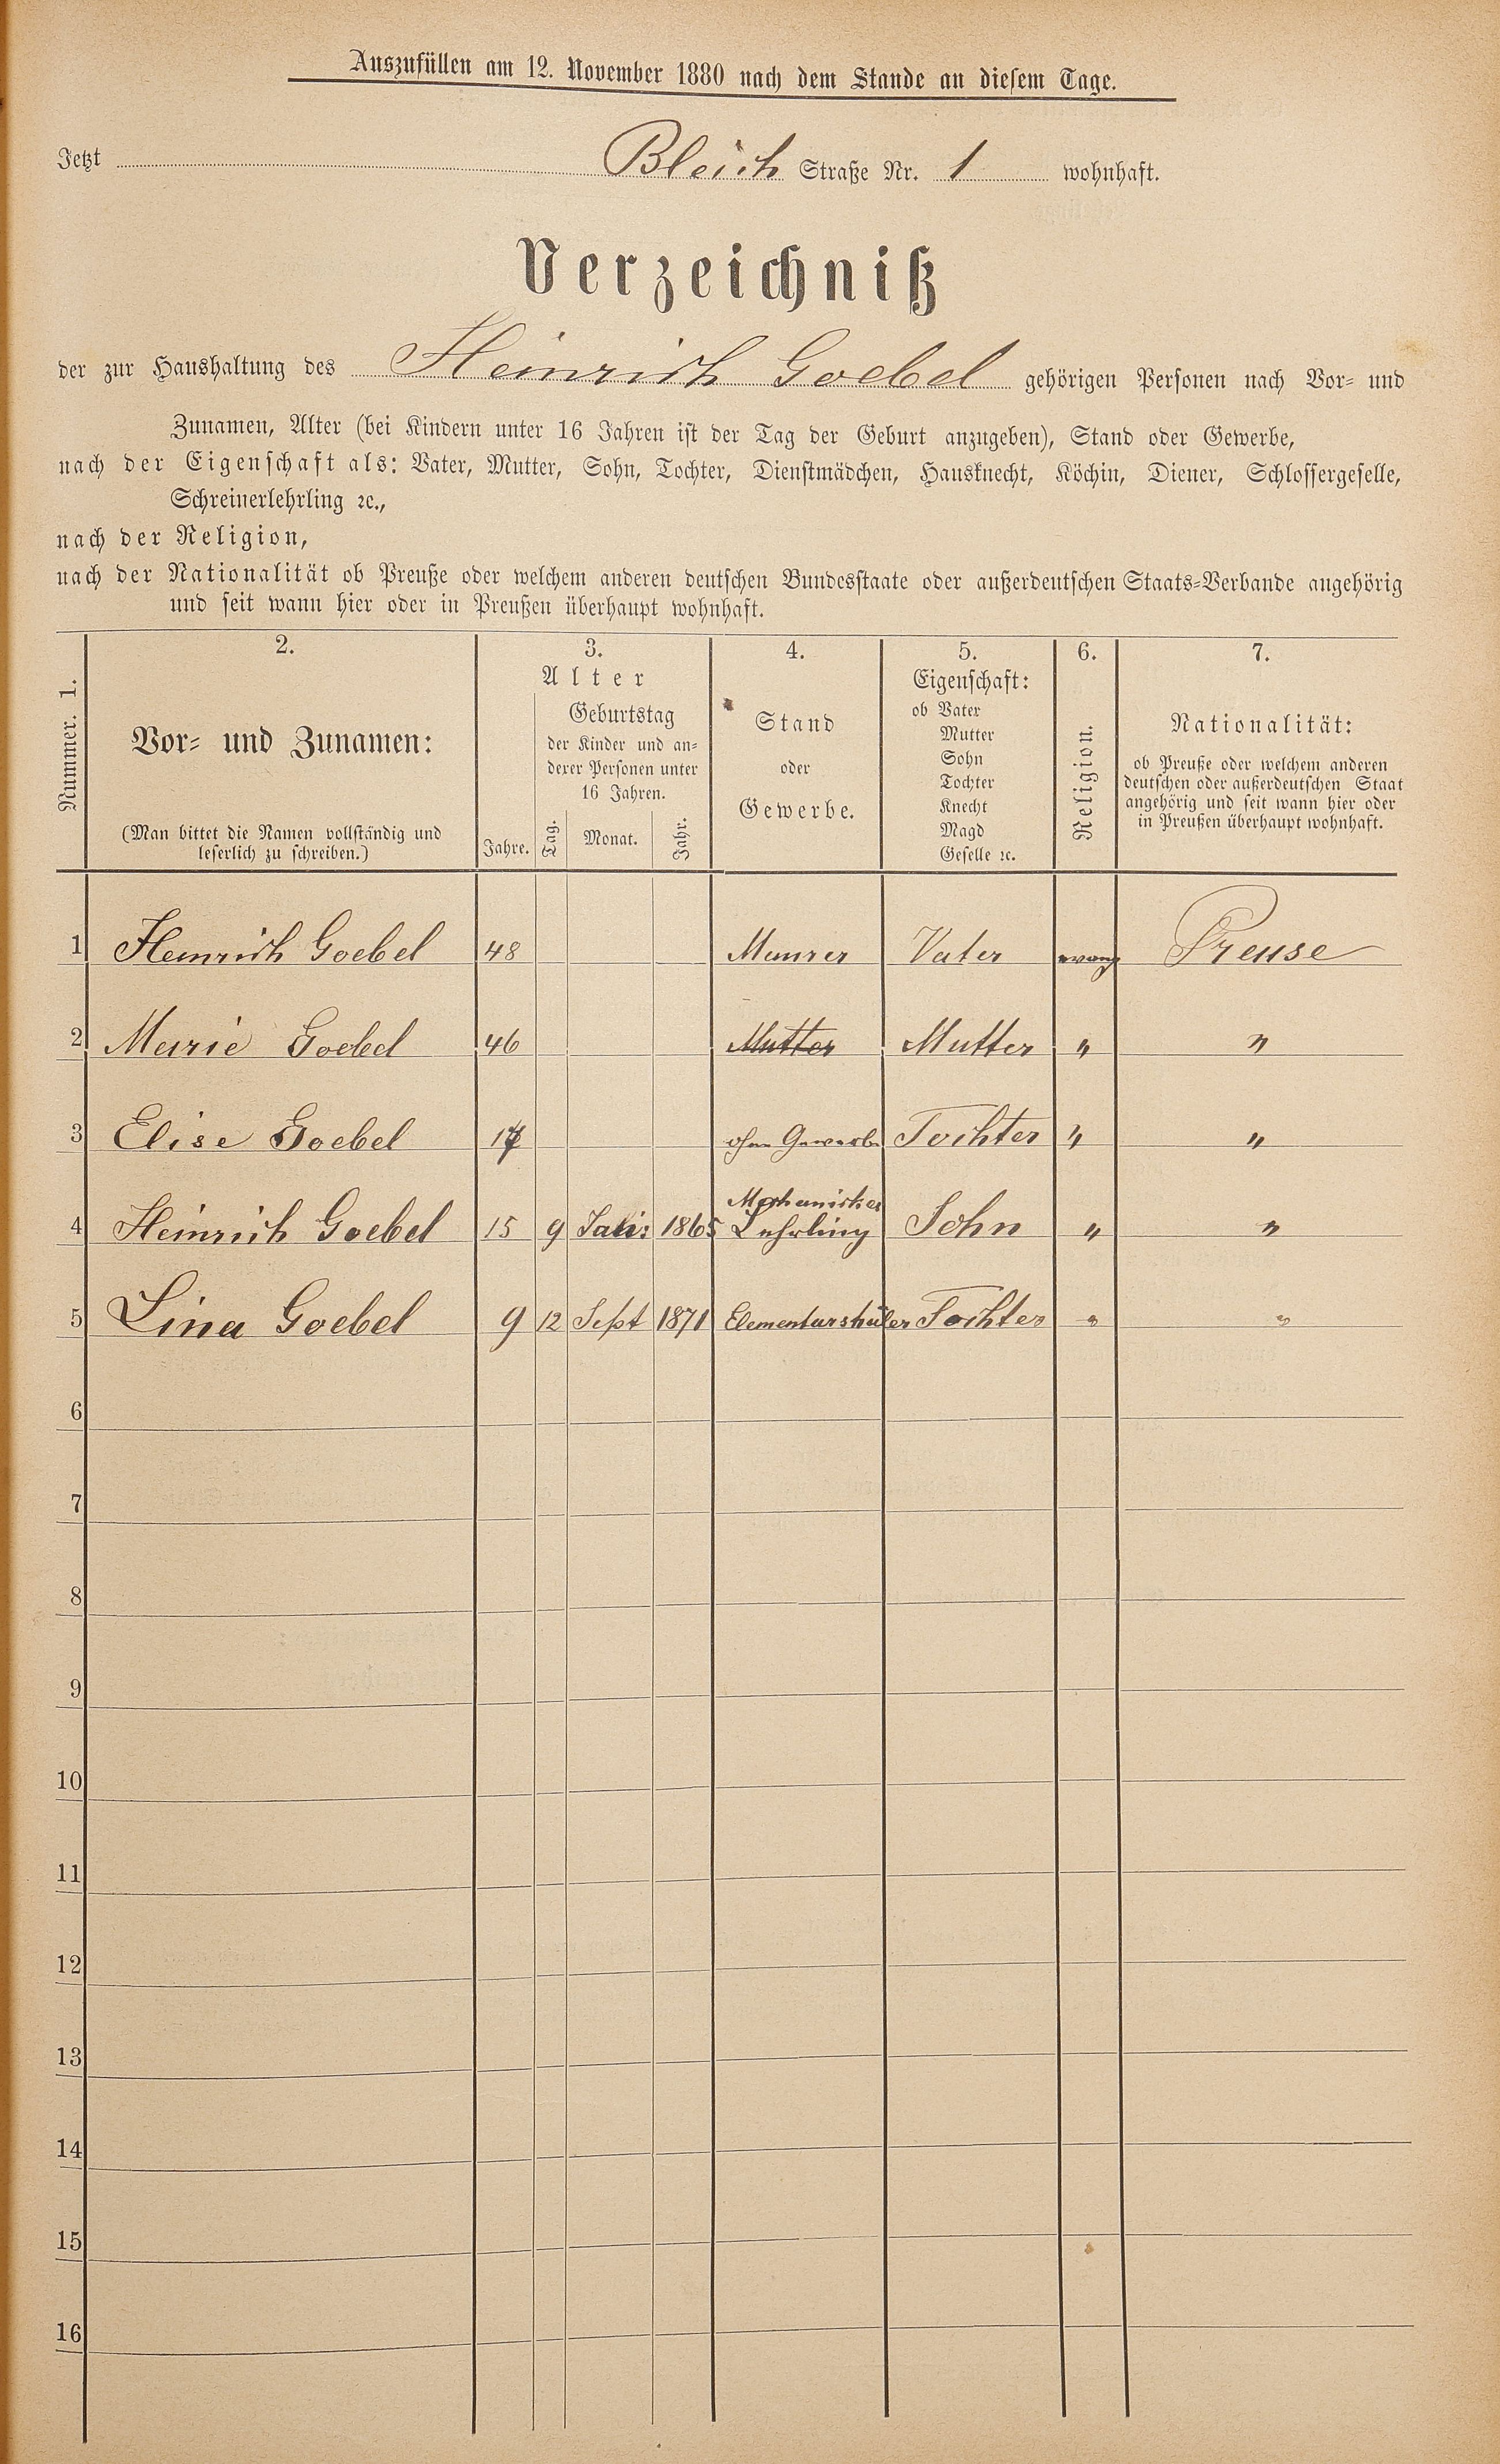 Auszufüllen am 12. November 1880 nach dem Stande an diesem Tage.
Jetzt Bleich Straße Nr. 1 wohnhaft.
Verzeichniß
der zur Haushaltung des Heinrich Goebel gehörigen Personen nach Vor- und
Zunamen, Alter (bei Kindern unter 16 Jahren ist der Tag der Geburt anzugeben), Stand oder Gewerbe,
nach der Eigenschaft als: Vater, Mutter, Sohn, Tochter, Dienstmädchen, Hausknecht, Köchin, Diener, Schlossergeselle,
Schreinerlehrling ꝛc.,
nach der Religion,
nach der Nationalität ob Preuße oder welchem anderen deutschen Bundesstaate oder außerdeutschen Staats-Verbande angehörig
und seit wann hier oder in Preußen überhaupt wohnhaft.
Nummer. 1.
2.
Vor- und Zunamen:
(Man bittet die Namen vollständig und
leserlich zu schreiben.)
3.
Alter
Jahre.
Geburtstag
der Kinder und an-
derer Personen unter
16 Jahren.
Tag. Monat. Jahr.
4.
Stand
oder
Gewerbe.
5.
Eigenschaft:
ob Vater
Mutter
Sohn
Tochter
Knecht
Magd
Geselle ꝛc.
6.
Religion.
7.
Nationalität:
ob Preuße oder welchem anderen
deutschen oder außerdeutschen Staat
angehörig und seit wann hier oder
in Preußen überhaupt wohnhaft.
1 Heinrich Goebel 48 Maurer Vater evang Preuse
2 Marie Goebel 46 Mutter Mutter " "
3 Elise Goebel 17 ohne Gewerbe Tochter " "
Mechaniker
4 Heinrich Goebel 15 9 1865 Lehrling Sohn " "
5 Lina Goebel 9 12 Sept 1871 Elementarshüler Tochter " "
6
7
8
9
10
11
12
13
14
15
16